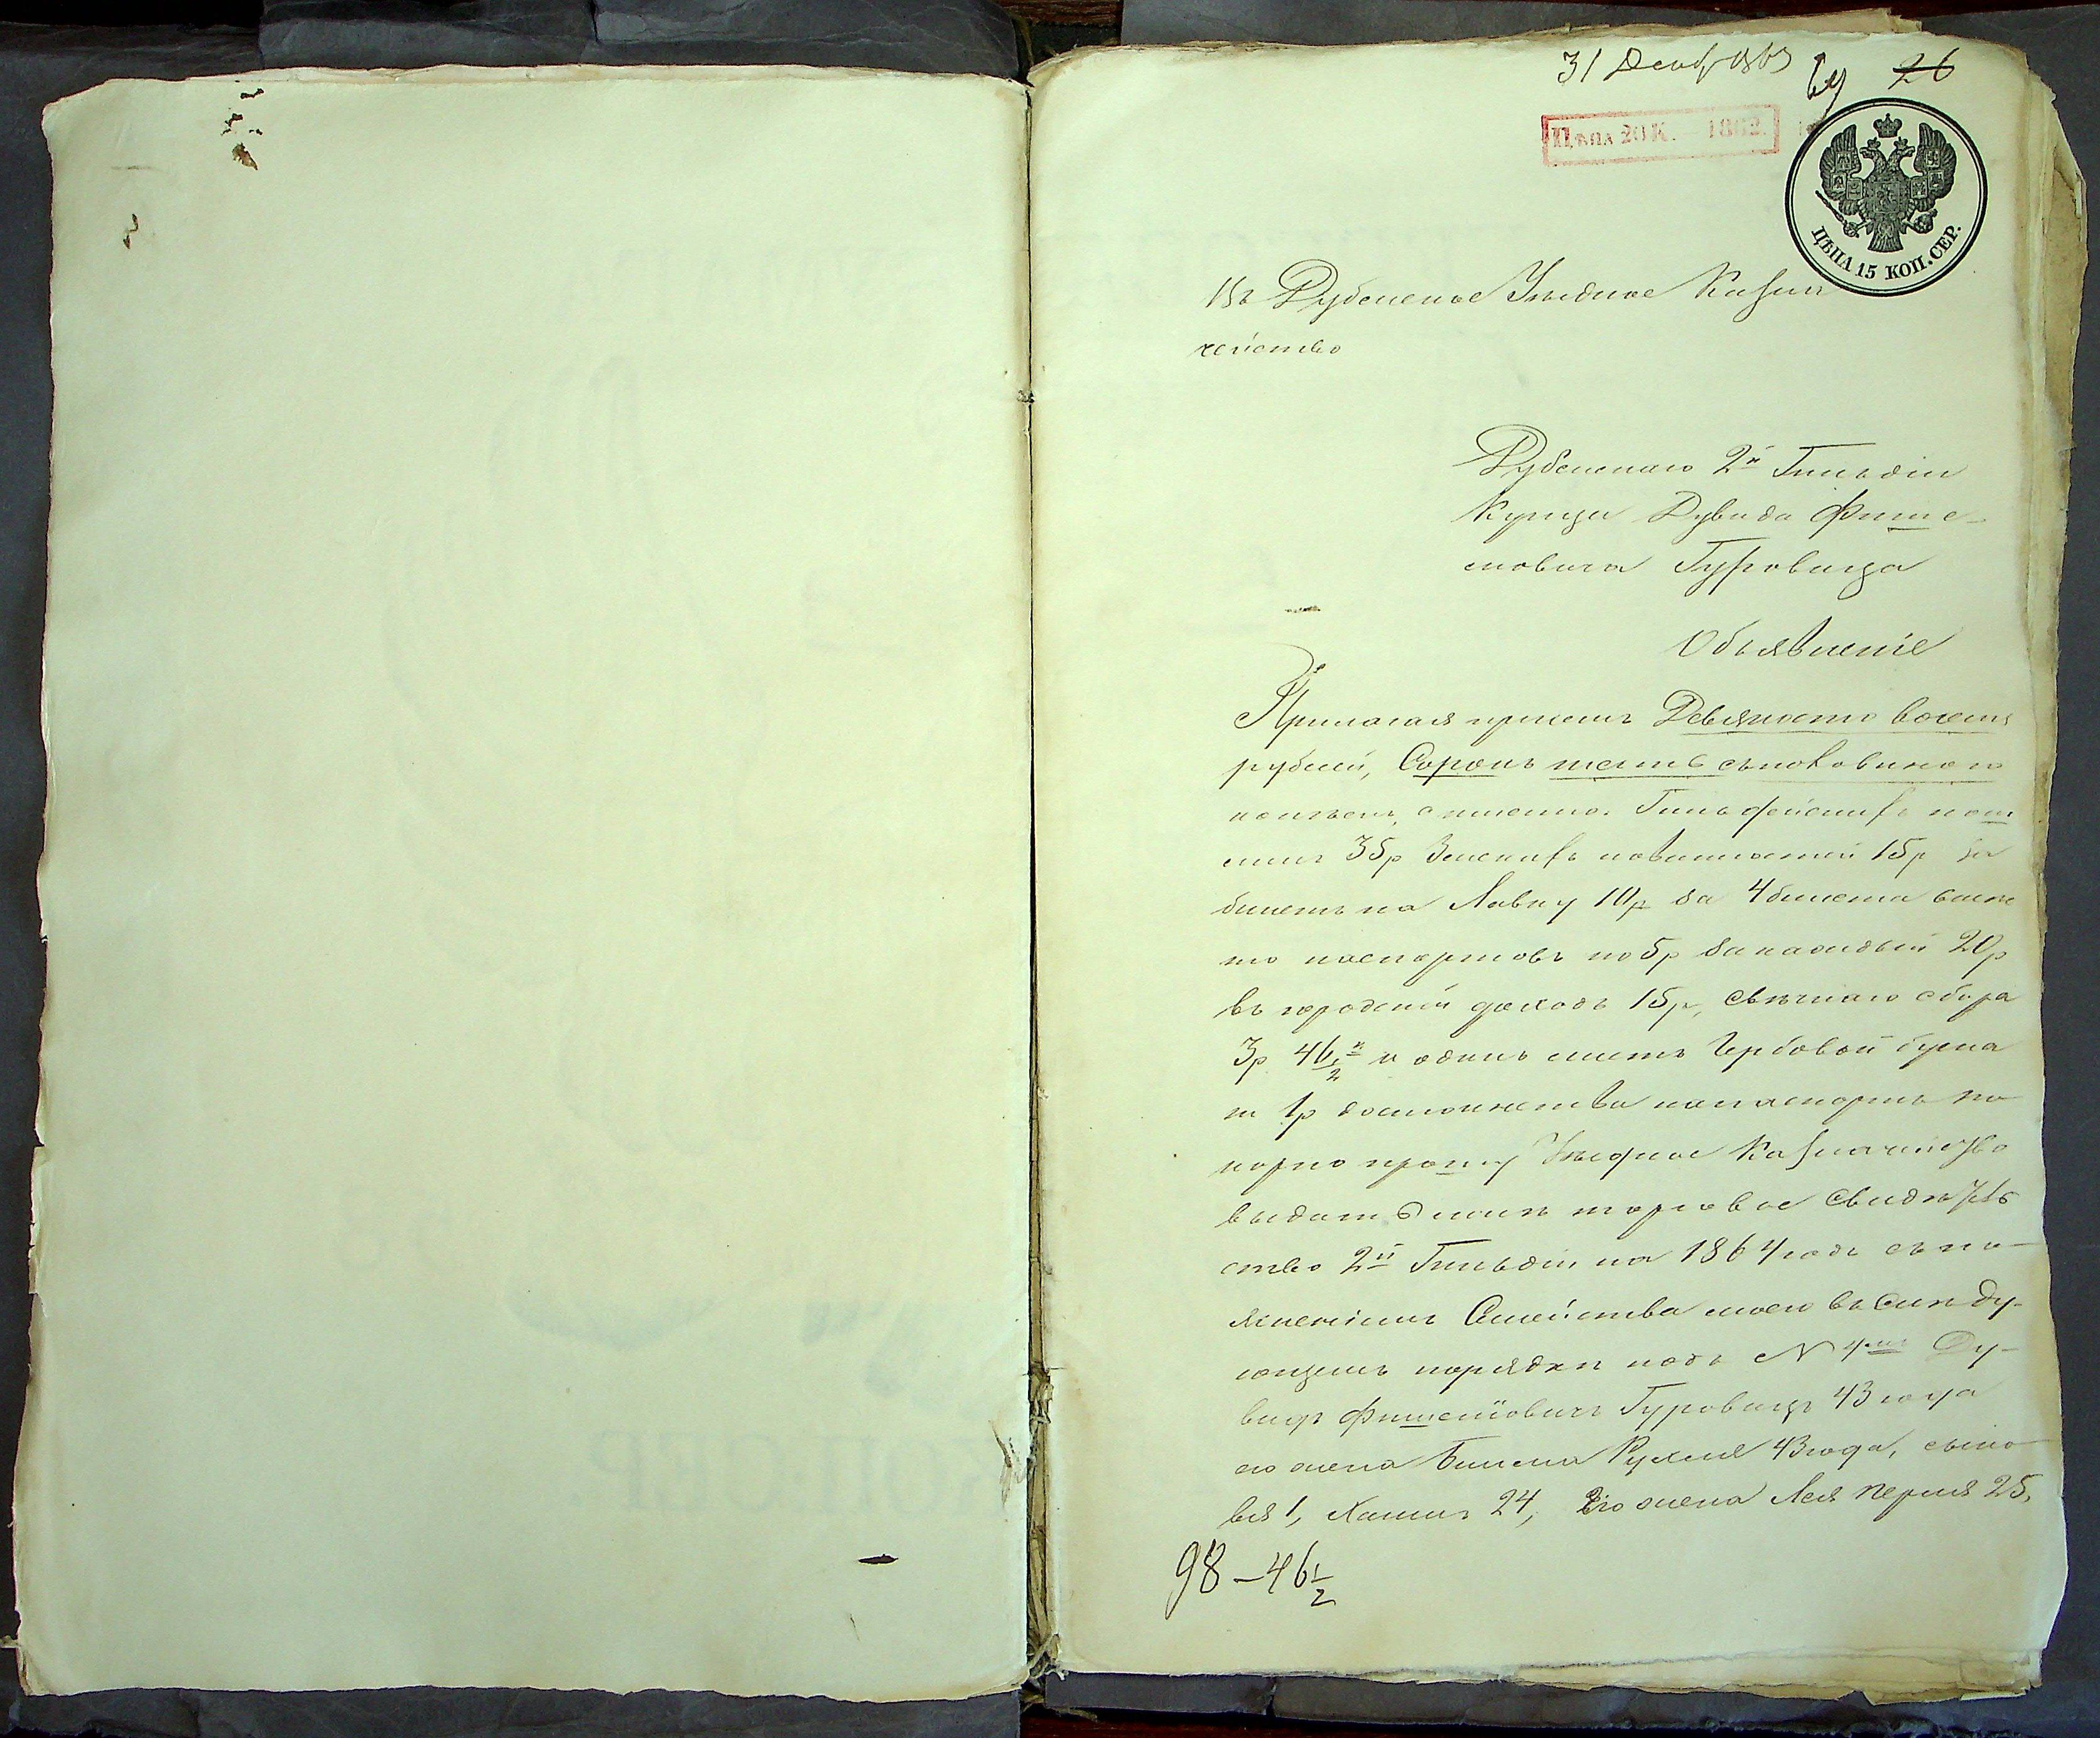 31 Декаб 1863
69 26
Цѣна 20 К. 1862.
ЦѢНА 15 КОП. СЕР.
Въ Дубенское Уѣздное Казна
чейство
Дубенскаго 2й Гильдіи
Купца Дувида Фише-
левича Гуровица
Объявленіе
Прилагая присемъ Девяносто восемь
рублей, Сорокъ шесть съ половиною
копѣекъ, а именно: Гильдейскихъ пош
линъ 35р Земскихъ повинностей 15р за
билетъ на Лавку 10р за 4 билета вмѣс
то паспортовъ по 5р за каждый 20р
въ городскій доходъ 15р, Свѣчнаго сбора
3р 46½к и одинъ листъ Гербовой бумаги
1р достоинства на паспортъ по
корно прошу Уѣздное Казначейство
выдать мнѣ торговое Свидѣтель
ство 2й Гильдіи на 1864 годъ съ по-
ясненіемъ Семейства моего въ Слѣду-
ющемъ порядкѣ подъ N 4мъ Ду-
видъ Фишелевичъ Гуровицъ 43 года
его жена Рухля 43 года, сыно
вья 1, Хаимъ 24, его жена Лея Перля 25,
98-46½